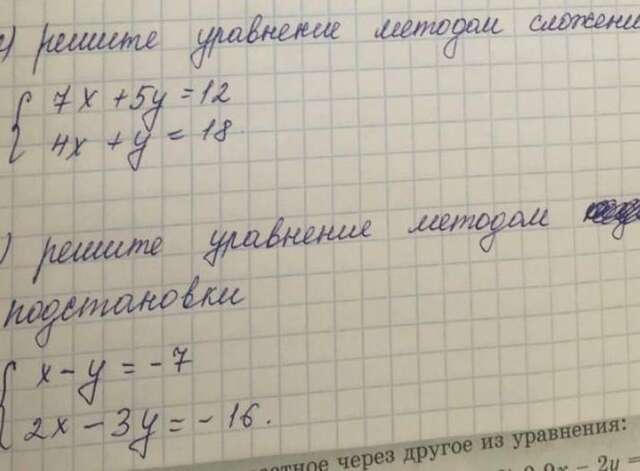 ) решите уравнение методом сложени
7x + 5y = 12
4x + y = 18
) решите уравнение методом
подстановки
x - y = - 7
2x - 3y = - 16.
через другое из уравнения:
- 2y =